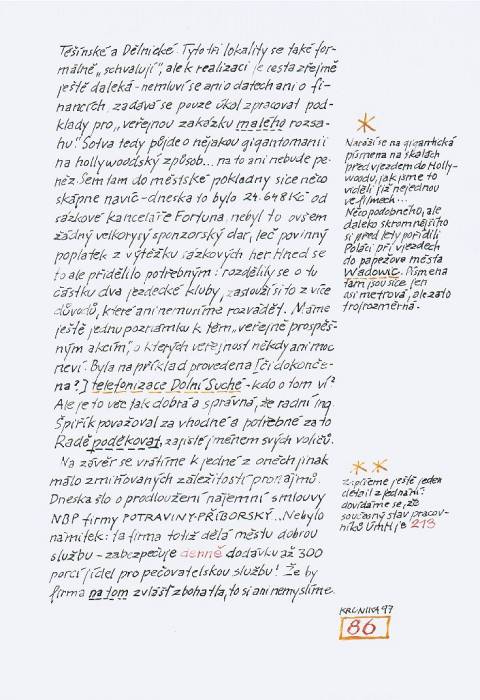 Těšínské a Dělnické. Tyto tři lokality se také for-
málně „schvalují", ale k realizaci je cesta zřejmě
ještě daleká - nemluví se ani o datech ani o fi-
nancích, zadává se pouze úkol zpracovat pod-
klady pro „veřejnou zakázku malého rozsa-
hu". Sotva tedy půjde o nějakou gigantomanii
na hollywoodský způsob... na to ani nebude pe-
něz. Sem tam do městské pokladny sice něco
skápne navíc - dneska to bylo 24.648 Kč od
sázkové kanceláře Fortuna, nebyl to ovšem
žádný velkorysý sponzorský dar, leč povinný
poplatek z výtěžku sázkových her. Hned se
to ale přidělilo potřebným: rozdělily se o tu
částku dva jezdecké kluby, zaslouží si to z více
důvodů, které ani nemusíme rozvádět. Máme
ještě jednu poznámku k těm „veřejně prospěš-
ným akcím", o kterých veřejnost někdy ani moc
neví. Byla například provedena [či dokonče-
na?] telefonizace Dolní Suché - kdo o tom ví?
Ale je to věc tak dobrá a správná, že radní ing.
Špiřík považoval za vhodné a potřebné za to
Radě poděkovat, zajisté jménem svých voličů.
Na závěr se vrátíme k jedné z oněch jinak
málo zmiňovaných záležitostí pronájmů.
Dneska šlo o prodloužení nájemní smlouvy
NBP firmy POTRAVINY-PŘÍBORSKÝ... Nebylo
námitek: ta firma totiž dělá městu dobrou
službu - zabezpečuje denně dodávku až 300
porcí jídel pro pečovatelskou službu! Že by
firma na tom zvlášť zbohatla, to si ani nemyslíme.
*
Naráží se na gigantická
písmena na skalách
před vjezdem do Holly-
woodu, jak jsme to
viděli již nejednou
ve filmech...
Něco podobného, ale
daleko skromnějšího
si před lety pořídili
Poláci při vjezdech
do papežova města
Wadowic. Písmena
tam jsou sice jen
asi metrová, ale zato
trojrozměrná.
**
Zapišeme ještě jeden
detail z jednání:
dovídáme se, že
současný stav pracov-
níků ÚMH je 213
KRONIKA 97
86